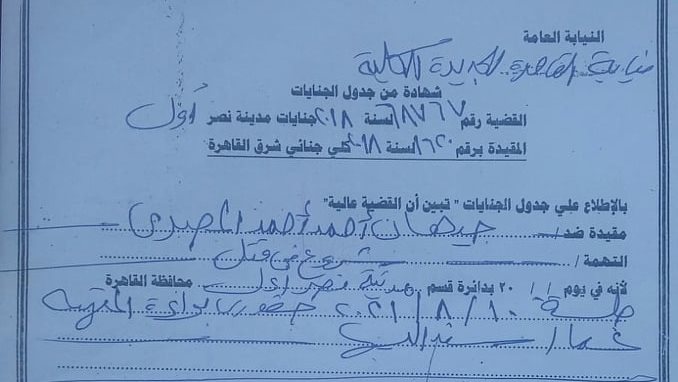 النيابة العامة
نيابة القاهرة الجديدة الكلية
شهادة من جدول الجنايات
القضية رقم ٦٨٧٦٧ لسنة ٢٠١٨ جنايات مدينة نصر أول
المقيدة برقم ٨٦٢٠ لسنة ٢٠١٨ كلي جنائي شرق القاهرة
بالإطلاع علي جدول الجنايات " تبين أن القضية عالية"
مقيدة ضد / جيهان أحمد أحمد
التهمة / شروع في قتل
لأنه في يوم / / ٢٠ بدائرة قسم مدينة نصر أول محافظة القاهرة
جلسة ١٠ / ٨ / ٢٠٢١ حضوري براءة المتهمة
عما